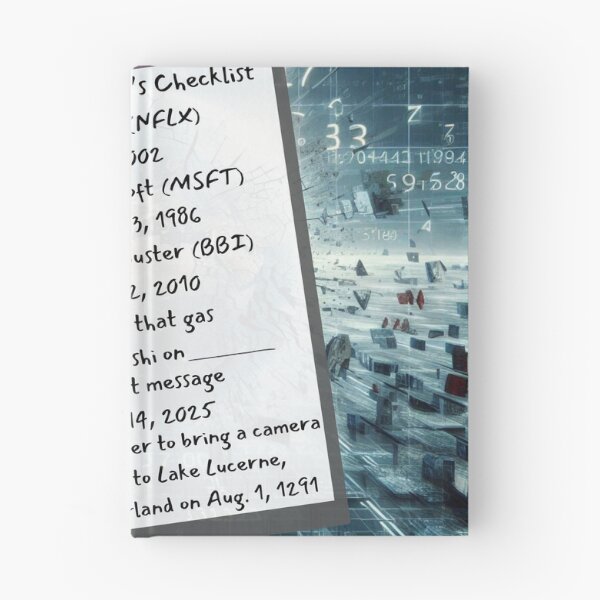 's Checklist
(NFLX)
002
oft (MSFT)
3, 1986
uster (BBI)
2, 2010
that gas
shi on ________
t message
14, 2025
er to bring a camera
to Lake Lucerne,
rland on Aug. 1, 1291
33
Z
591528
4